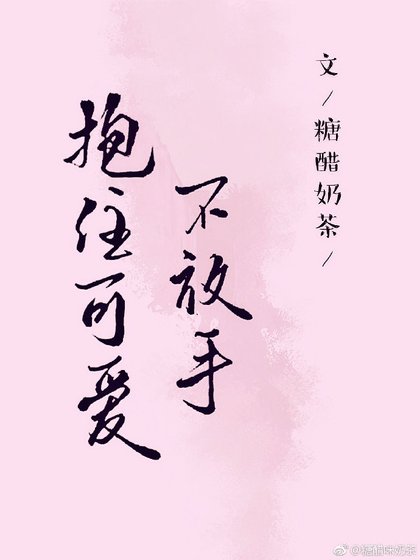 抱住可爱
不放手
文/糖醋奶茶/
@糖醋味奶茶